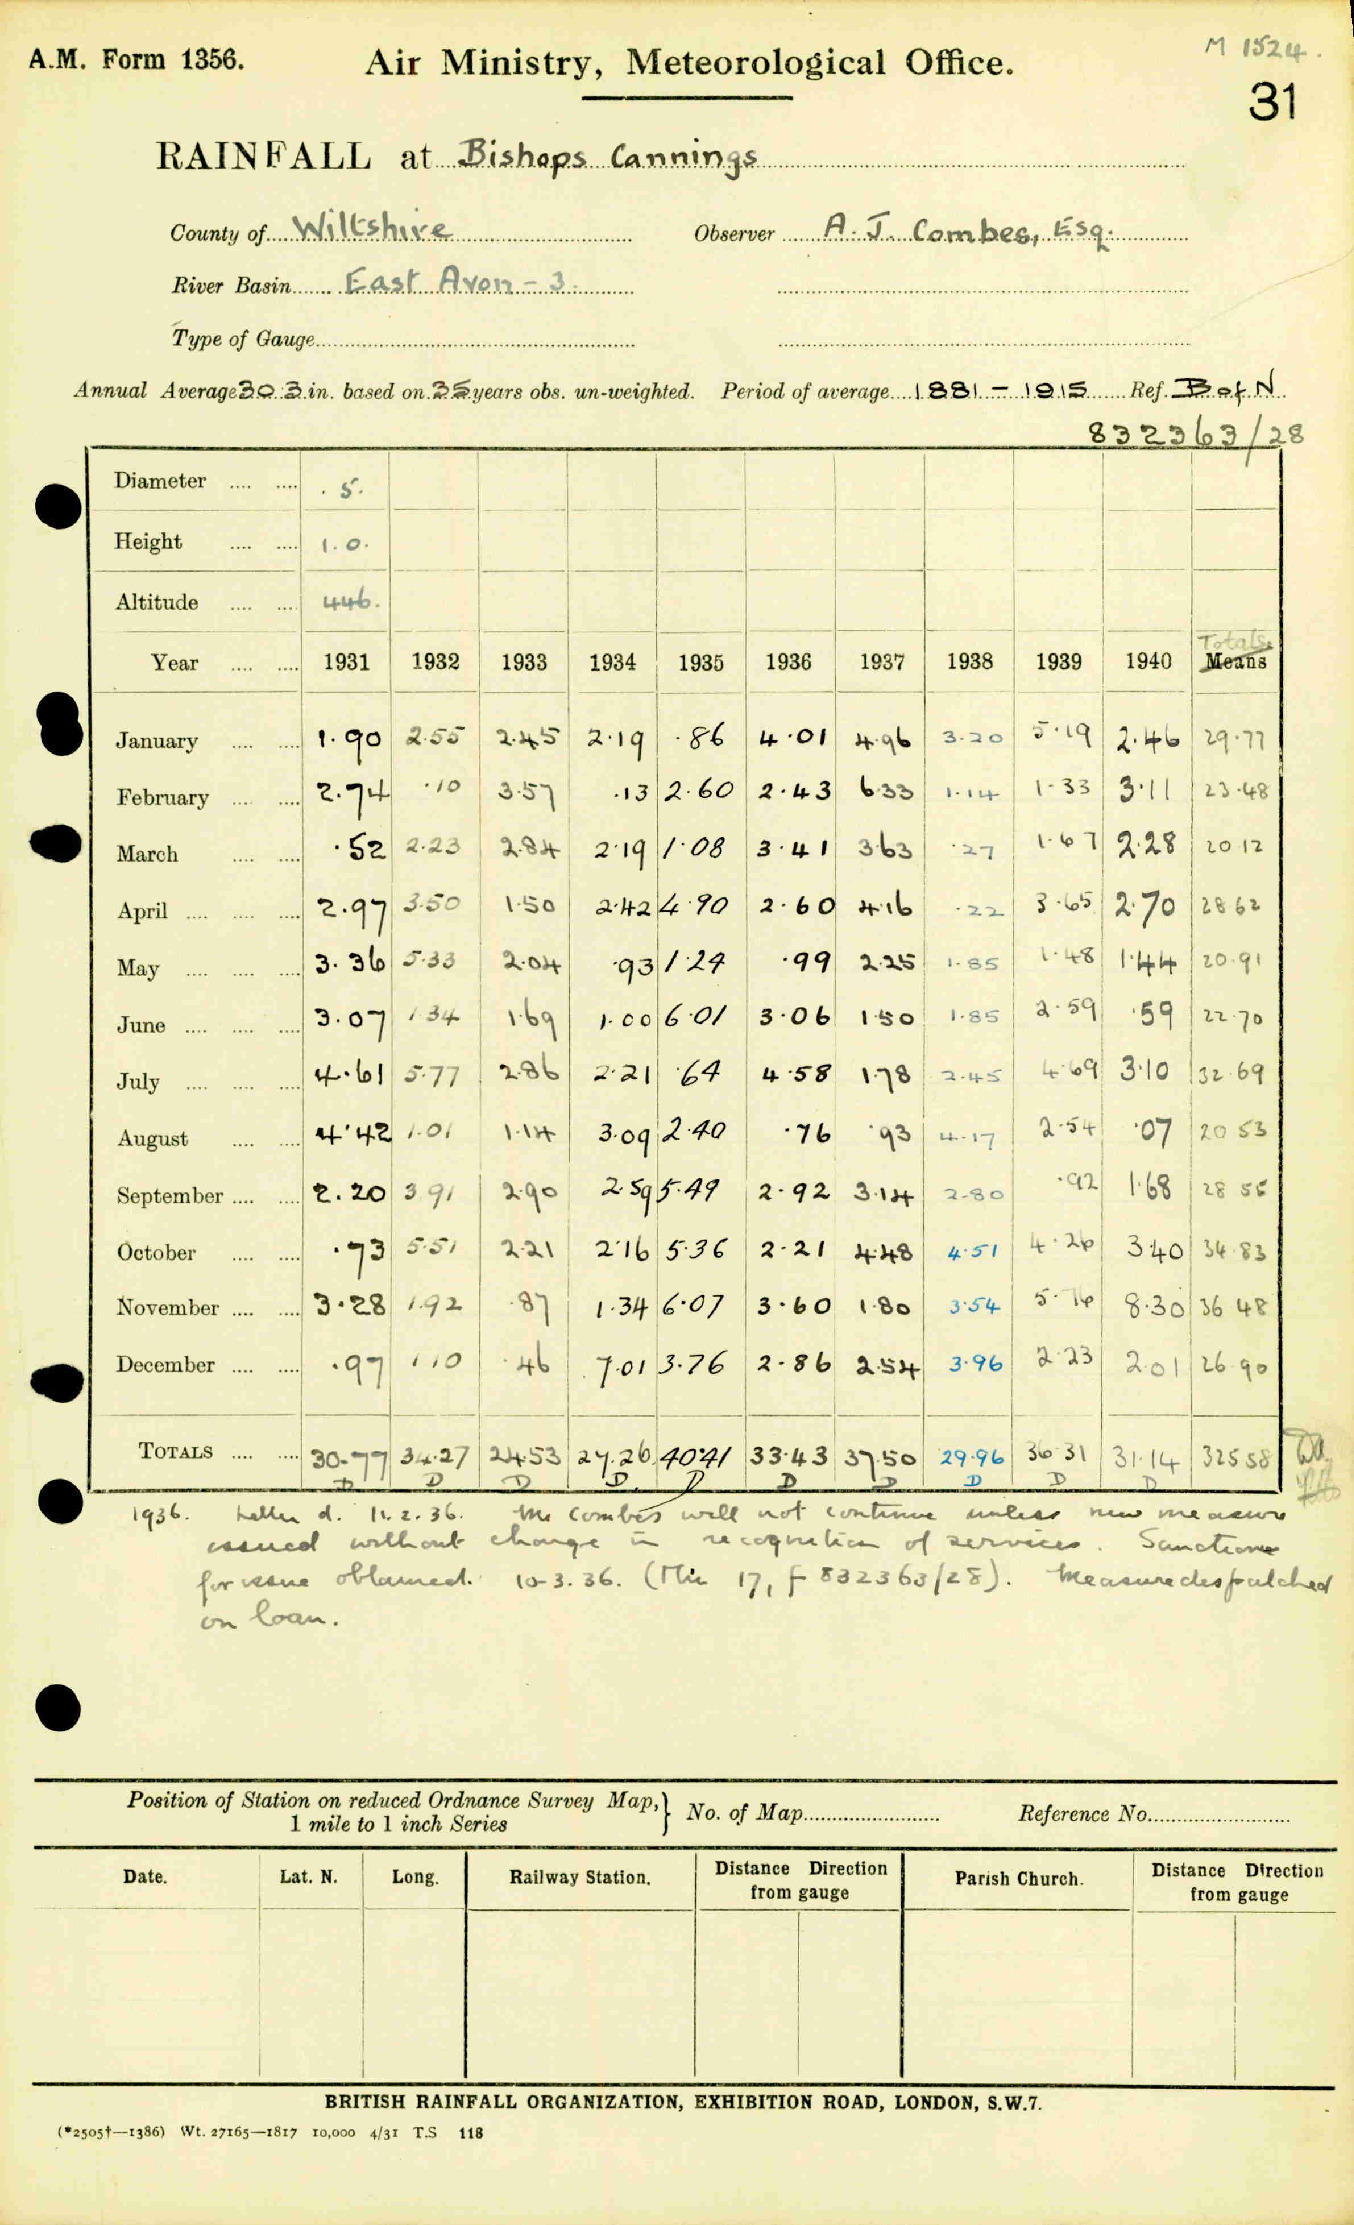 M 1524.
A.M. Form 1356. Air Ministry, Meteorological Office.
31
RAINFALL at Bishops Cannings
County of Wiltshire Observer A. J. Combes, Esq.
River Basin East Avon - 3.
Type of Gauge
Annual Average 30.3 in. based on 35 years obs. un-weighted. Period of average 1881 - 1915 Ref. B of N
832363/28
Diameter .... .... 5.
Height .... .... 1.0.
Altitude .... .... 446.
Totals
Year .... .... 1931 1932 1933 1934 1935 1936 1937 1938 1939 1940 Means
January .... .... 1.90 2.55 2.45 2.19 .86 4.01 4.96 3.20 5.19 2.46 29.77
February .... .... 2.74 .10 3.57 .13 2.60 2.43 6.33 1.14 1.33 3.11 23.48
March .... .... .52 2.23 2.84 2.19 1.08 3.41 3.63 .27 1.67 2.28 20.12
April .... .... .... 2.97 3.50 1.50 2.42 4.90 2.60 4.16 .22 3.65 2.70 28.62
May .... .... .... 3.36 5.33 2.04 .93 1.24 .99 2.25 1.85 1.48 1.44 20.91
June .... .... .... 3.07 1.34 1.69 1.00 6.01 3.06 1.50 1.85 2.59 .59 22.70
July .... .... .... 4.61 5.77 2.86 2.21 .64 4.58 1.78 2.45 4.69 3.10 32.69
August .... .... 4.42 1.01 1.14 3.09 2.40 .76 .93 4.17 2.54 .07 20.53
September .... .... 2.20 3.91 2.90 2.59 5.49 2.92 3.14 2.80 .92 1.68 28.55
October .... .... .73 5.51 2.21 2.16 5.36 2.21 4.48 4.51 4.26 3.40 34.83
November .... .... 3.28 1.92 .87 1.34 6.07 3.60 1.80 3.54 5.76 8.30 36.48
December .... .... .97 1.10 .46 7.01 3.76 2.86 2.54 3.96 2.23 2.01 26.90
TOTALS .... .... 30.77 34.27 24.53 27.26 40.41 33.43 37.50 29.96 36.31 31.14 325.58
D D D D D D D D D
1936. Letter d. 11.2.36. Mr Combes will not continue unless new measure
issued without change in recognition of services. Sanction
for issue obtained. 10-3.36. (Min 17, f 832363/28). Measure despatched
on loan.
Position of Station on reduced Ordnance Survey Map, } No. of Map Reference No.
1 mile to 1 inch Series
Date. Lat. N. Long. Railway Station. Distance Direction from gauge Parish Church. Distance Direction from gauge
BRITISH RAINFALL ORGANIZATION, EXHIBITION ROAD, LONDON, S.W.7.
(*2505†—1386) Wt. 27165—1817 10,000 4/31 T.S 118